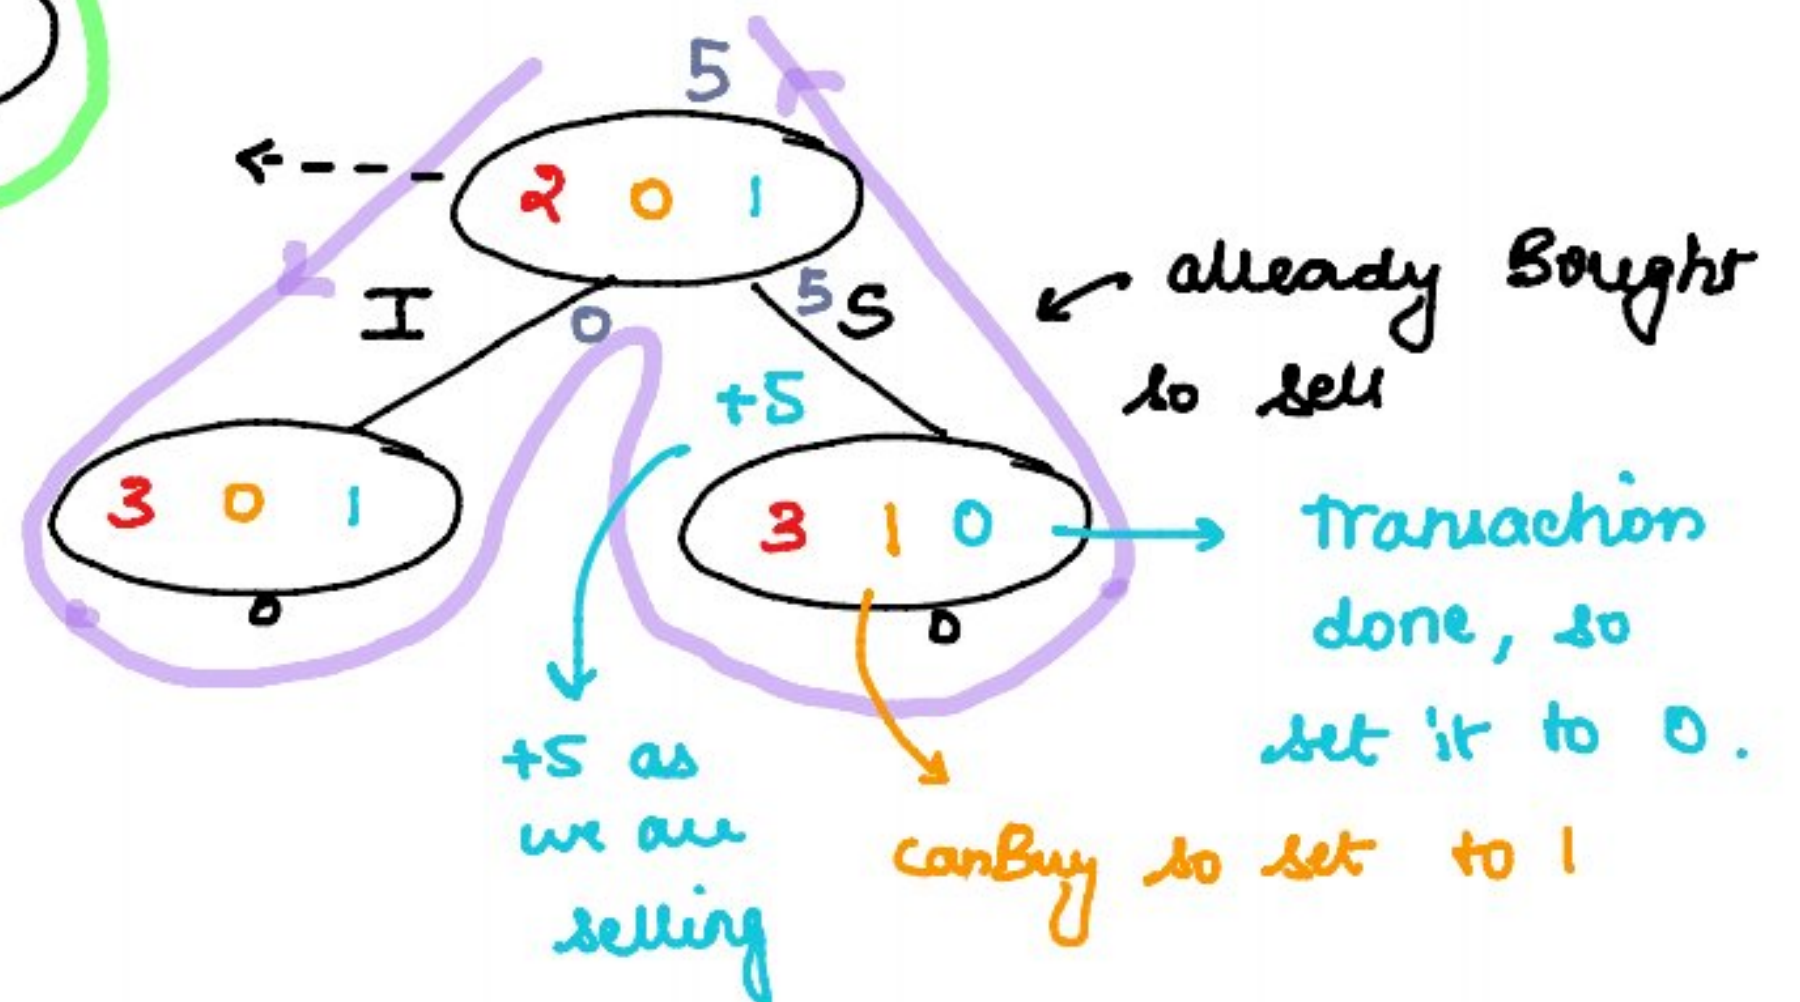 5
2 0 1
I
0
5
S
already Bought
so sell
+5
3 0 1
0
3 1 0
0
Transaction
done, so
set it to 0.
+5 as
we are
selling
canBuy so set to 1